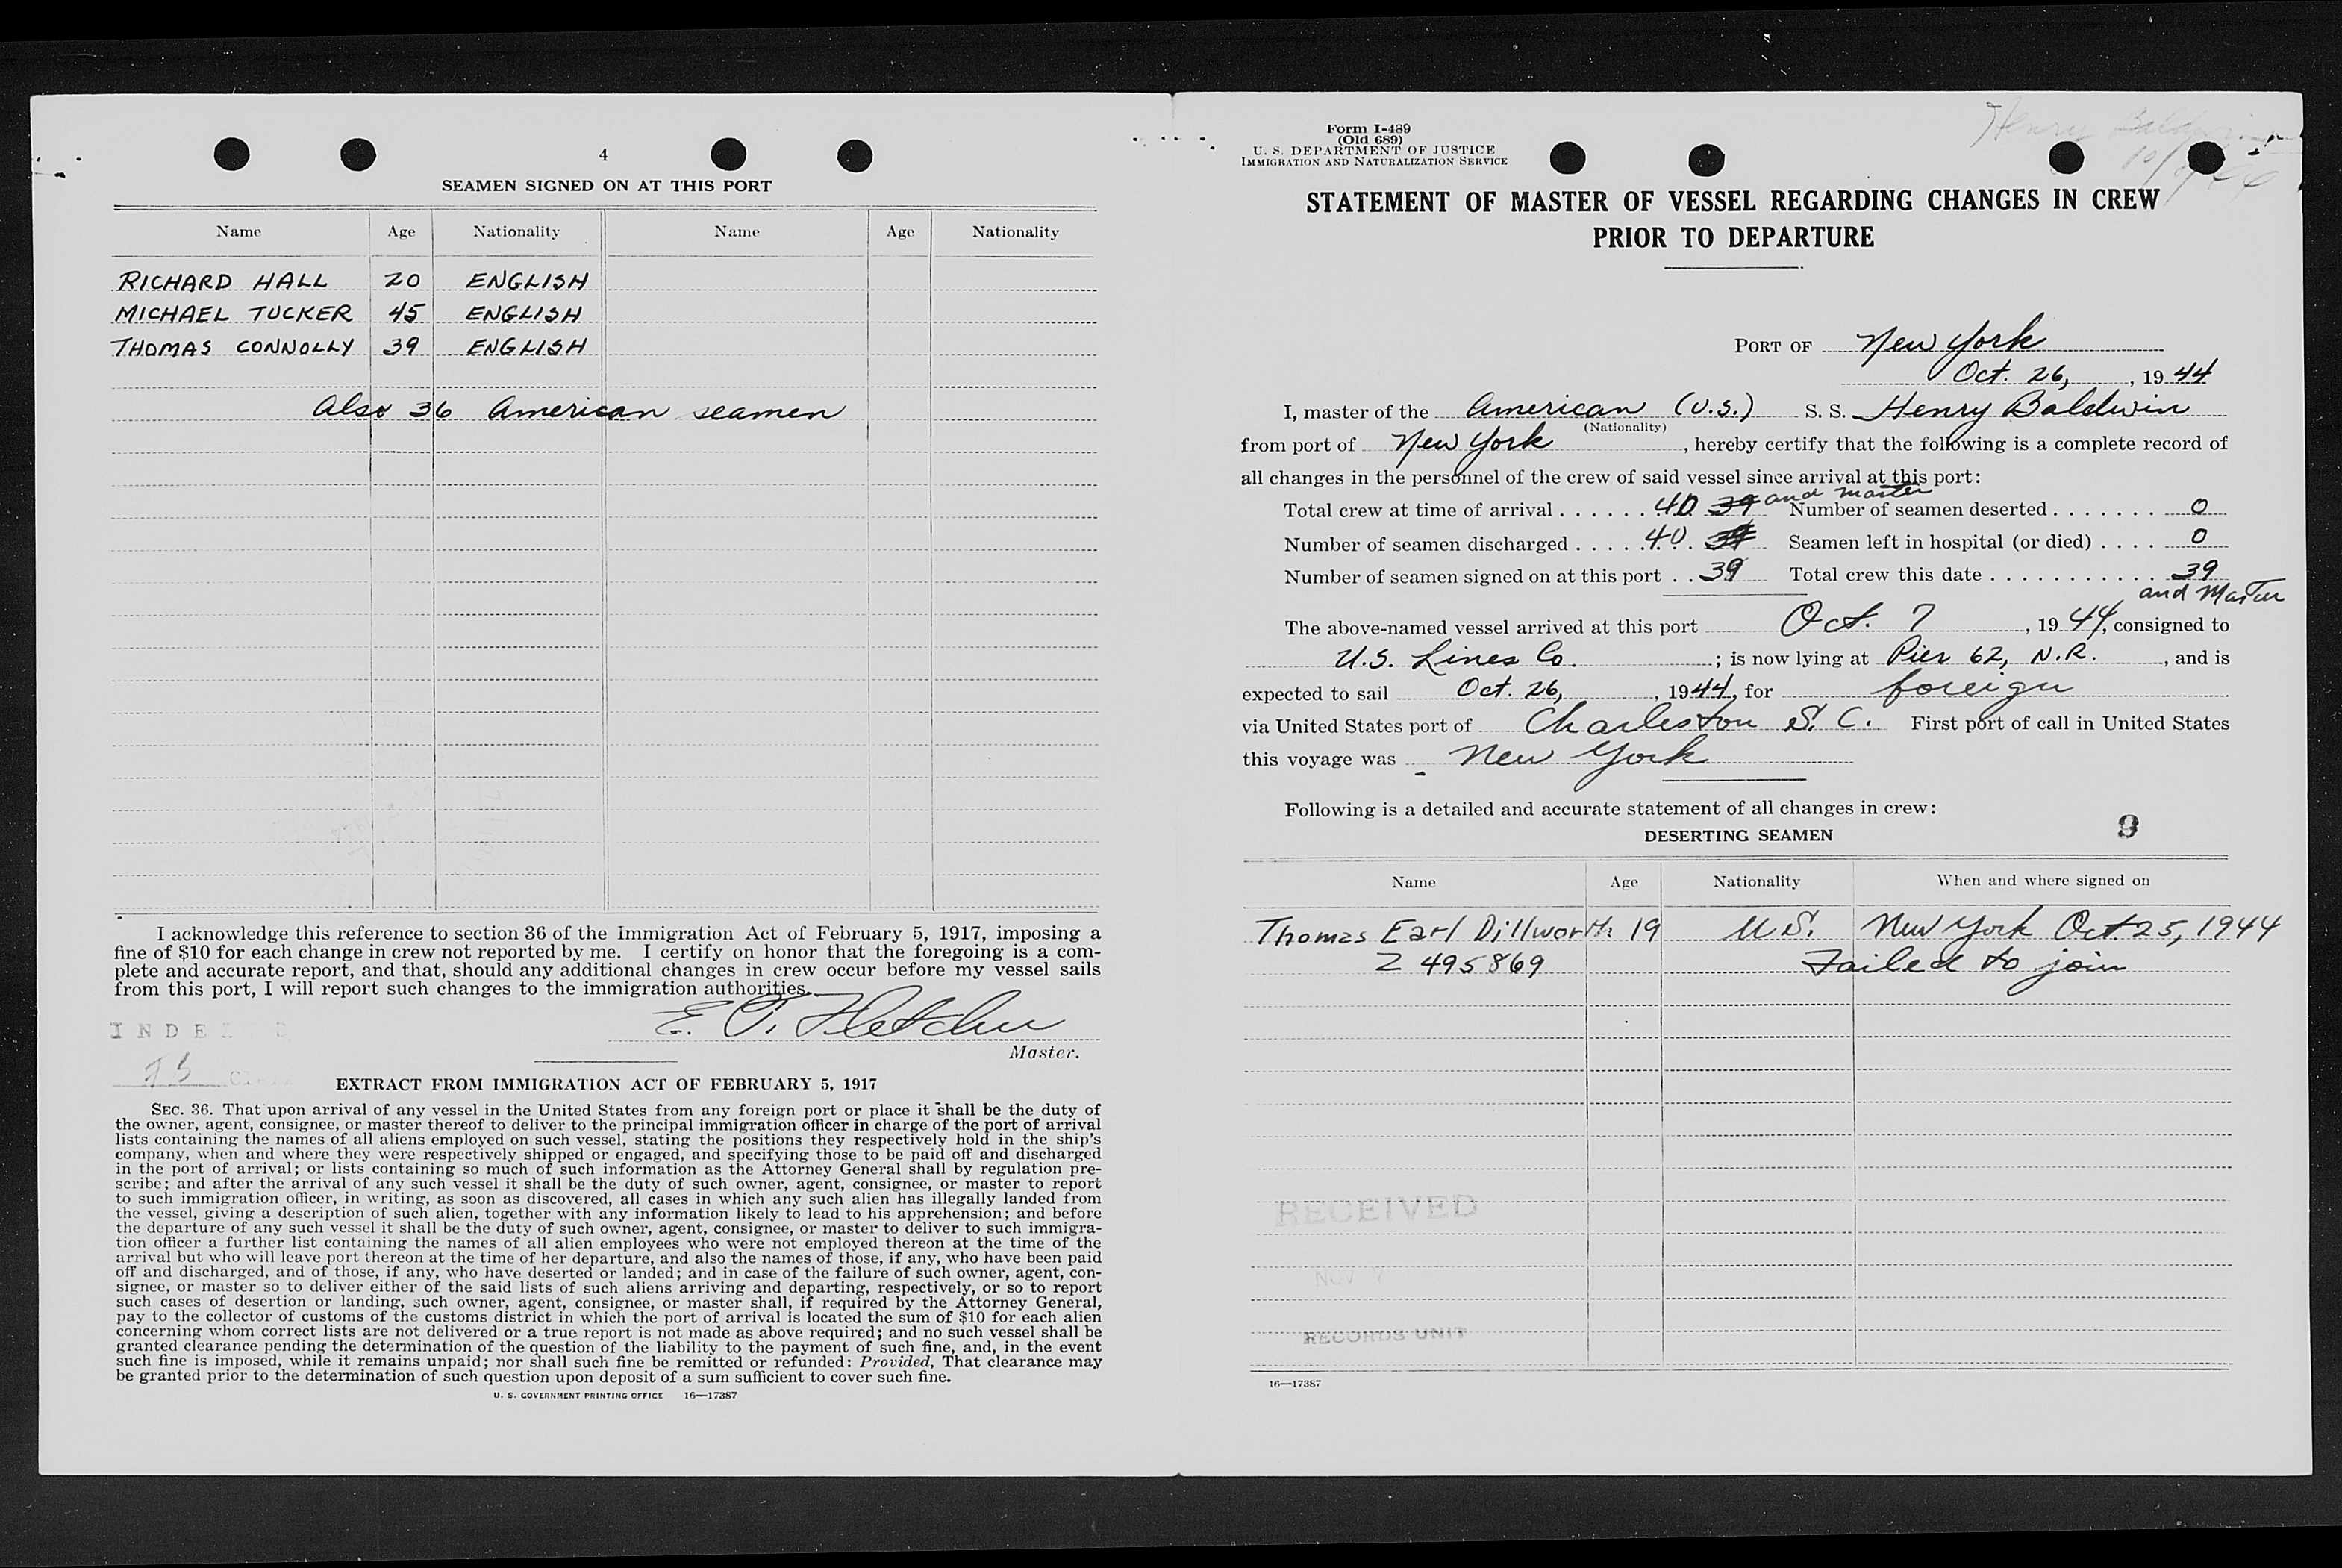 4
SEAMEN SIGNED ON AT THIS PORT
Name Age Nationality Name Age Nationality
RICHARD HALL 20 ENGLISH
MICHAEL TUCKER 45 ENGLISH
THOMAS CONNOLLY 39 ENGLISH
Also 36 American seamen
I acknowledge this reference to section 36 of the Immigration Act of February 5, 1917, imposing a
fine of $10 for each change in crew not reported by me. I certify on honor that the foregoing is a com-
plete and accurate report, and that, should any additional changes in crew occur before my vessel sails
from this port, I will report such changes to the immigration authorities.
E. T. Fletcher
Master.
EXTRACT FROM IMMIGRATION ACT OF FEBRUARY 5, 1917
SEC. 36. That upon arrival of any vessel in the United States from any foreign port or place it shall be the duty of
the owner, agent, consignee, or master thereof to deliver to the principal immigration officer in charge of the port of arrival
lists containing the names of all aliens employed on such vessel, stating the positions they respectively hold in the ship's
company, when and where they were respectively shipped or engaged, and specifying those to be paid off and discharged
in the port of arrival; or lists containing so much of such information as the Attorney General shall by regulation pre-
scribe; and after the arrival of any such vessel it shall be the duty of such owner, agent, consignee, or master to report
to such immigration officer, in writing, as soon as discovered, all cases in which any such alien has illegally landed from
the vessel, giving a description of such alien, together with any information likely to lead to his apprehension; and before
the departure of any such vessel it shall be the duty of such owner, agent, consignee, or master to deliver to such immigra-
tion officer a further list containing the names of all alien employees who were not employed thereon at the time of the
arrival but who will leave port thereon at the time of her departure, and also the names of those, if any, who have been paid
off and discharged, and of those, if any, who have deserted or landed; and in case of the failure of such owner, agent, con-
signee, or master so to deliver either of the said lists of such aliens arriving and departing, respectively, or so to report
such cases of desertion or landing, such owner, agent, consignee, or master shall, if required by the Attorney General,
pay to the collector of customs of the customs district in which the port of arrival is located the sum of $10 for each alien
concerning whom correct lists are not delivered or a true report is not made as above required; and no such vessel shall be
granted clearance pending the determination of the question of the liability to the payment of such fine, and, in the event
such fine is imposed, while it remains unpaid; nor shall such fine be remitted or refunded: Provided, That clearance may
be granted prior to the determination of such question upon deposit of a sum sufficient to cover such fine.
U. S. GOVERNMENT PRINTING OFFICE 16—17387
Form I-489
(Old 689)
U. S. DEPARTMENT OF JUSTICE
IMMIGRATION AND NATURALIZATION SERVICE
Henry Baldwin
STATEMENT OF MASTER OF VESSEL REGARDING CHANGES IN CREW
PRIOR TO DEPARTURE
PORT OF New York
Oct. 26, , 19 44
I, master of the American (U.S.) S. S. Henry Baldwin
(Nationality)
from port of New York , hereby certify that the following is a complete record of
all changes in the personnel of the crew of said vessel since arrival at this port:
Total crew at time of arrival . . . . . . 40 39 and master Number of seamen deserted . . . . . . . 0
Number of seamen discharged . . . . . 40 39 Seamen left in hospital (or died) . . . . 0
Number of seamen signed on at this port . . 39 Total crew this date . . . . . . . . . . . . 39
and Master
The above-named vessel arrived at this port Oct. 7 , 19 44, consigned to
U.S. Lines Co. ; is now lying at Pier 62, N.R. , and is
expected to sail Oct. 26, , 1944, for foreign
via United States port of Charleston S. C. First port of call in United States
this voyage was New York
Following is a detailed and accurate statement of all changes in crew:
DESERTING SEAMEN 9
Name Age Nationality When and where signed on
Thomas Earl Dillworth 19 U.S. New York Oct. 25, 1944
Z 495869 Failed to join
RECEIVED
NOV 7
RECORDS UNIT
16—17387